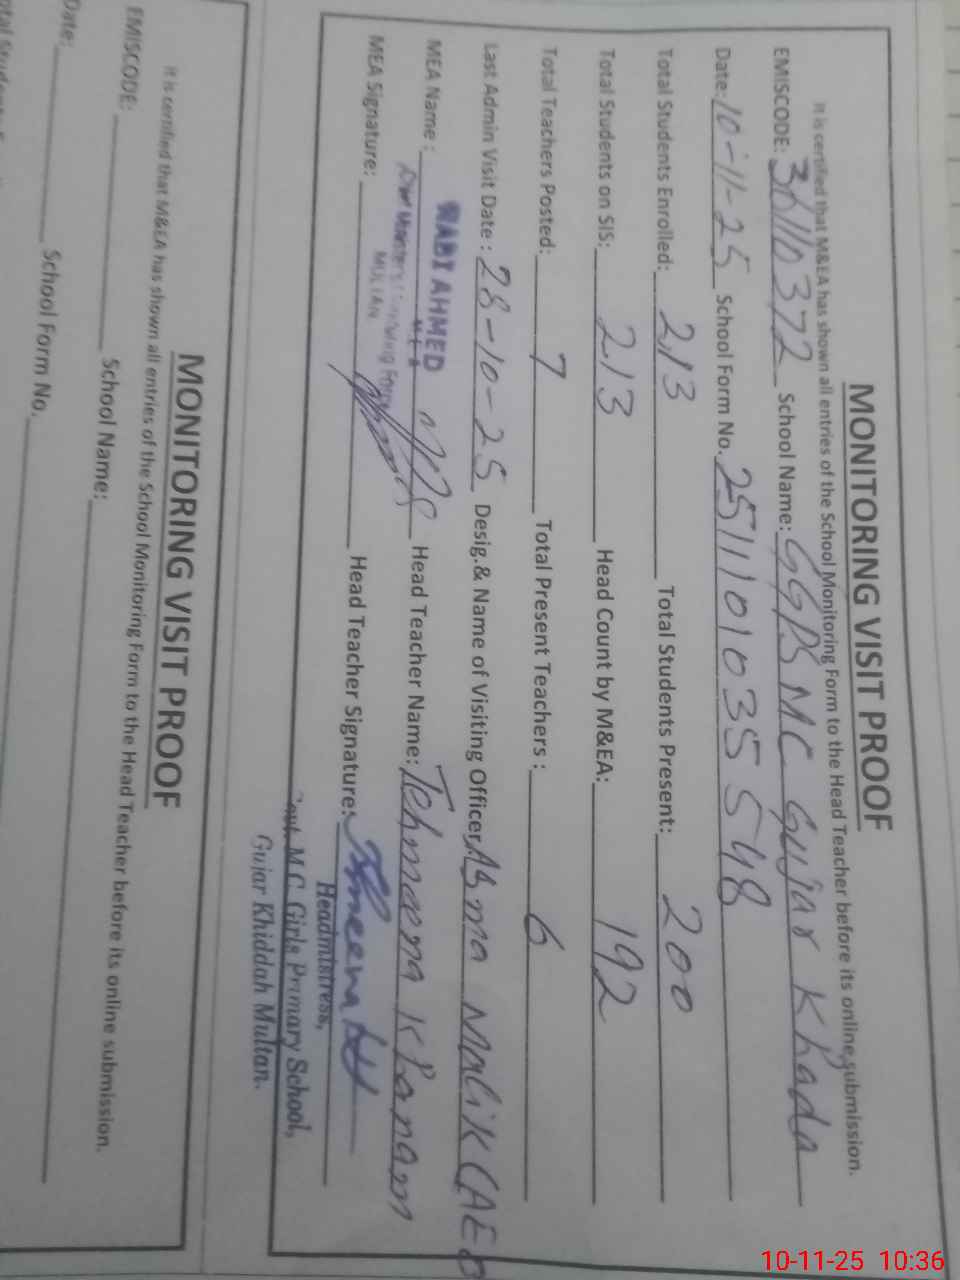 MONITORING VISIT PROOF
It is certified that M&EA has shown all entries of the School Monitoring Form to the Head Teacher before its online submission.
EMISCODE: 36110372 School Name: GGPS MC Gujar Khada
Date: 10-11-25 School Form No. 25111010355548
Total Students Enrolled: 213 Total Students Present: 200
Total Students on SIS: 213 Head Count by M&EA: 192
Total Teachers Posted: 7 Total Present Teachers : 6
Last Admin Visit Date : 28-10-25 Desig.& Name of Visiting Officer: Asma Malik (AEO
MEA Name : RABI AHMED Head Teacher Name: Tehmeena Khanam
M E A
Chief Minister's Monitoring Force
MULTAN
MEA Signature: Head Teacher Signature:
Headmistress,
Govt. M.C. Girls Primary School,
Gujar Khiddah Multan.
MONITORING VISIT PROOF
It is certified that M&EA has shown all entries of the School Monitoring Form to the Head Teacher before its online submission.
EMISCODE: School Name:
Date: School Form No.
10-11-25 10:36